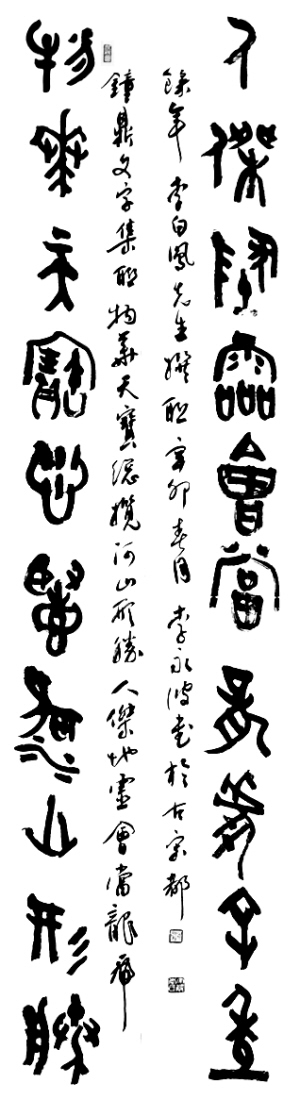 物華天寶總攬河山形勝
鐘鼎文字集聯物華天寶總攬河山形勝人傑地靈會當龍
餘年李白鳳先生撰聯辛卯春月李永波書於古宋都
人傑地靈會當龍